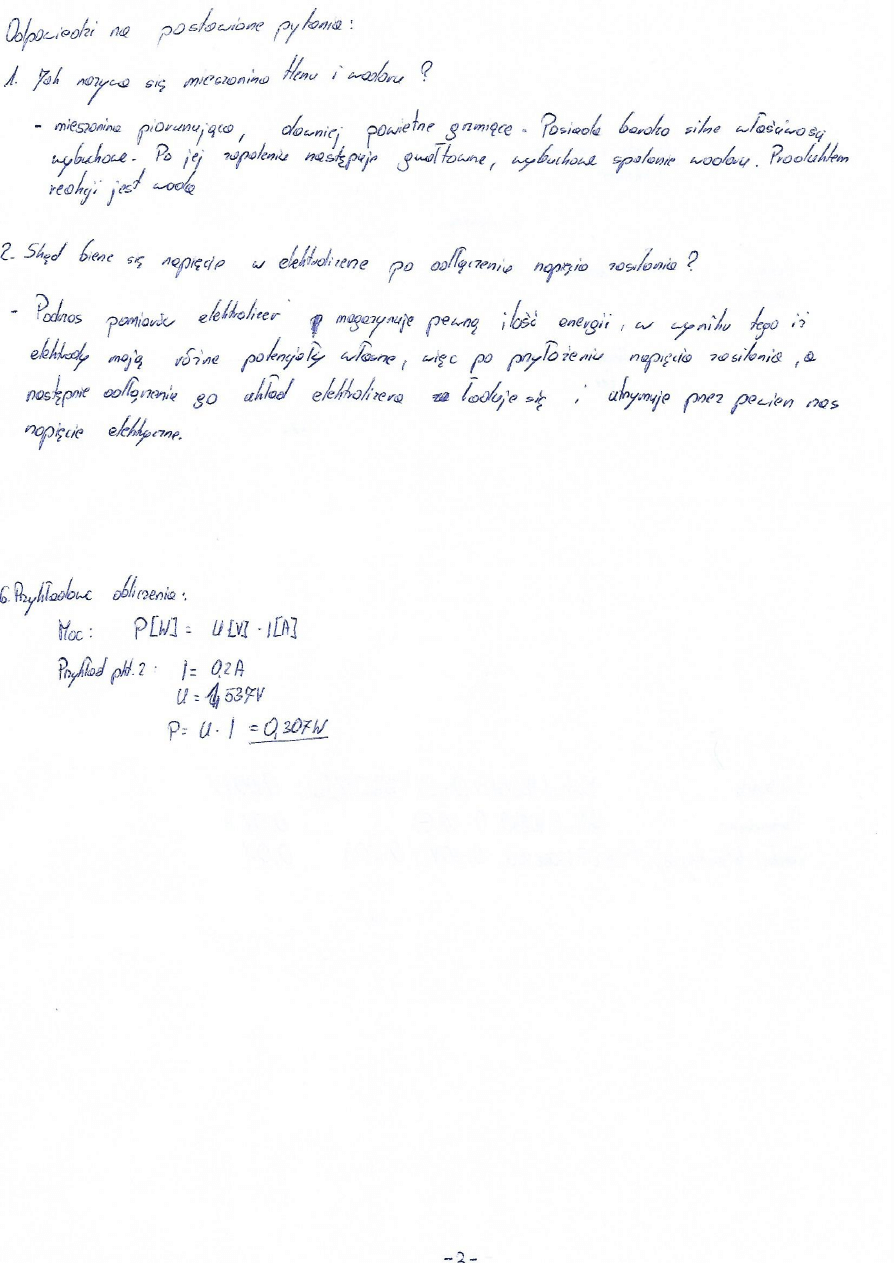 Odpowiedzi na postawione pytania:
1. Jak nazywa się mieszanina tlenu i wodoru?
- mieszanina piorunująca, dawniej powietrze grzmiące. Posiada bardzo silne właściwości
wybuchowe. Po jej zapaleniu następuje gwałtowne, wybuchowe spalanie wodoru. Produktem
reakcji jest woda
2. Skąd bierze się napięcie w elektrolizerze po odłączeniu napięcia zasilania?
- Podczas pomiarów elektrolizer magazynuje pewną ilość energii, w wyniku tego iż
elektrody mają różne potencjały własne, więc po przyłożeniu napięcia zasilania, a
następnie odłączenie go układ elektrolizera ładuje się i utrzymuje przez pewien czas
napięcie elektryczne.
6. Przykładowe obliczenia:
Moc: P[W] = U[V] · I[A]
Przykład pkt. 2: I = 0,2A
U = 1,537V
P = U · I = 0,307W
- 2 -